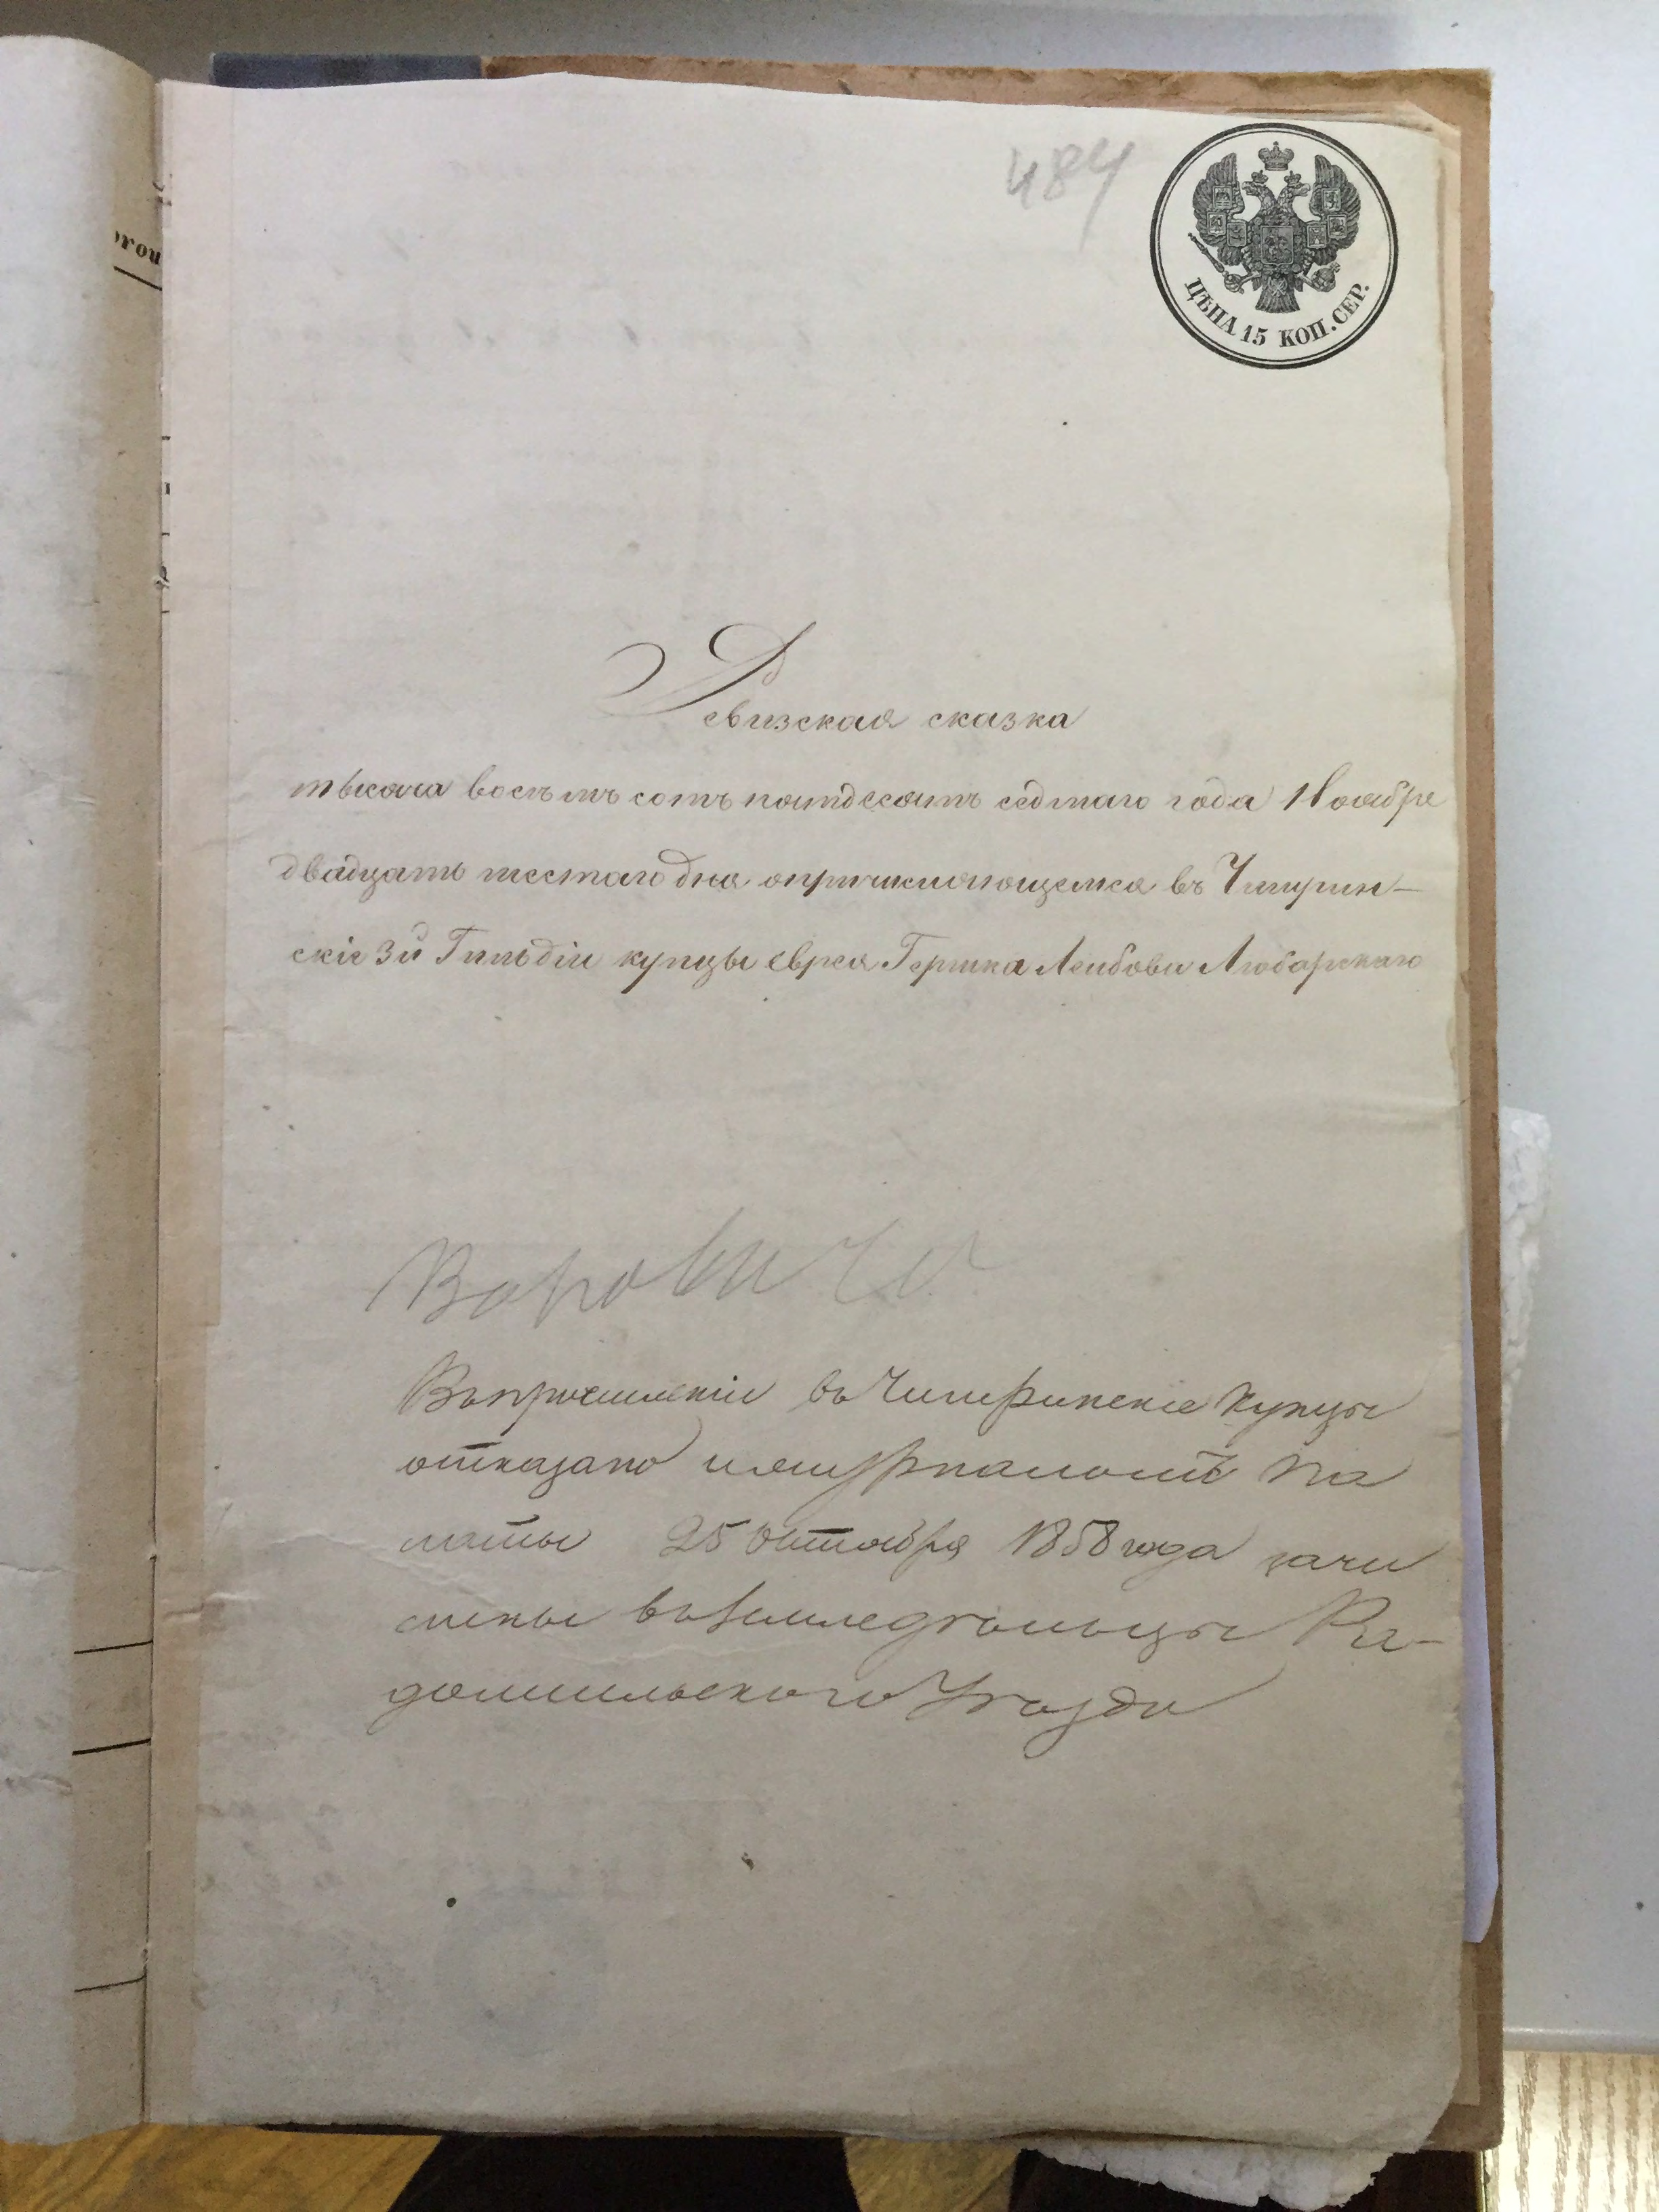 484
ЦѢНА 15 КОП. СЕР.
Ревизская сказка
тысяча восемъ сотъ пятдесятъ седмаго года Ноября
двадцать шестаго дня опричисляющемся въ Чигирин-
скіе 3й Гильдіи купцы еврея Гершка Лейбова Любарскаго
Въ причисленіи въ Чигиринскіе купцы
отказано журналомъ Па
латы 25 октября 1858 года зачи
слены въ земледѣльцы Ра-
домысльскаго Уѣзда